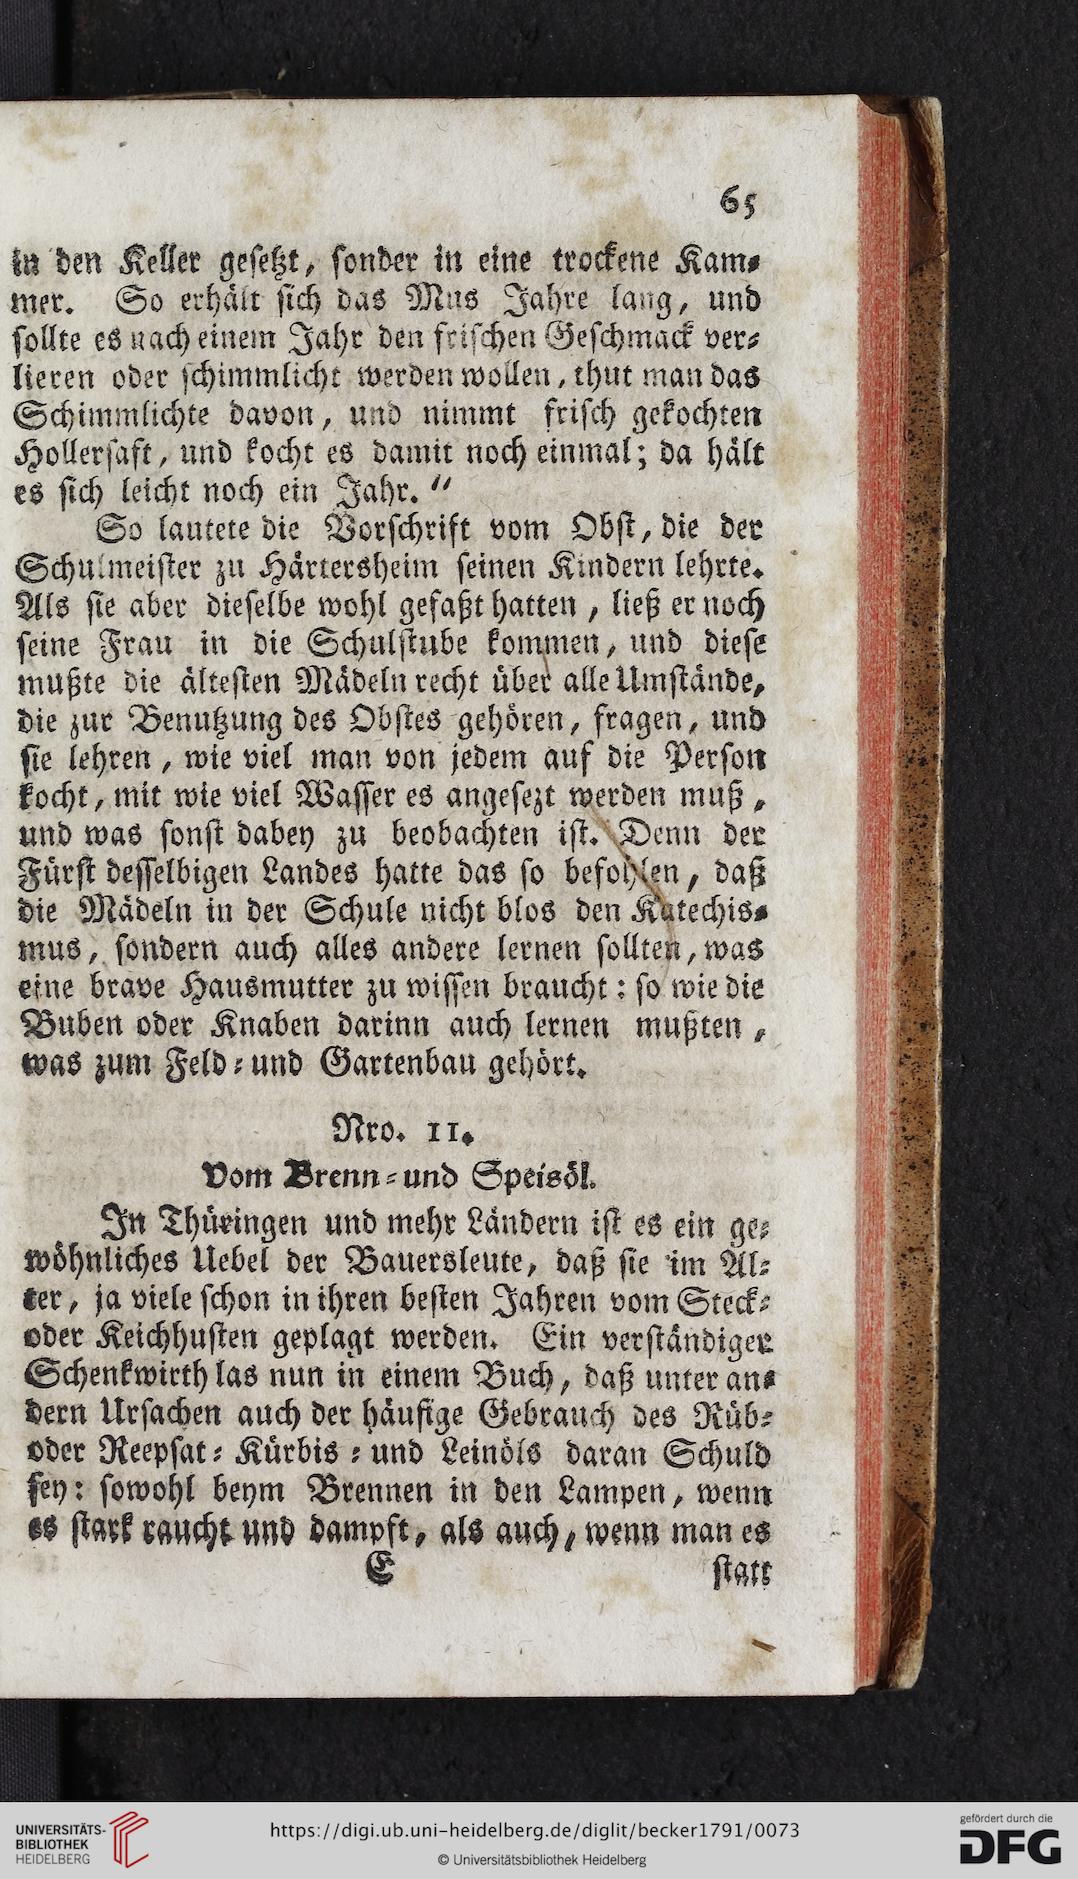 65
in den Keller gesetzt, sonder in eine trockene Kam⸗
mer. So erhält sich das Mus Jahre lang, und
sollte es nach einem Jahr den frischen Geschmack ver⸗
lieren oder schimmlicht werden wollen, thut man das
Schimmlichte davon, und nimmt frisch gekochten
Hollersaft, und kocht es damit noch einmal; da hält
es sich leicht noch ein Jahr.“
So lautete die Vorschrift vom Obst, die der
Schulmeister zu Härtersheim seinen Kindern lehrte.
Als sie aber dieselbe wohl gefaßt hatten, ließ er noch
seine Frau in die Schulstube kommen, und diese
mußte die ältesten Mädeln recht über alle Umstände,
die zur Benutzung des Obstes gehören, fragen, und
sie lehren, wie viel man von jedem auf die Person
kocht, mit wie viel Wasser es angesezt werden muß,
und was sonst dabey zu beobachten ist. Denn der
Fürst desselbigen Landes hatte das so befohlen, daß
die Mädeln in der Schule nicht blos den Katechis⸗
mus, sondern auch alles andere lernen sollten, was
eine brave Hausmutter zu wissen braucht: so wie die
Buben oder Knaben darinn auch lernen mußten,
was zum Feld⸗ und Gartenbau gehört.
Nro. 11.
Vom Brenn⸗ und Speisöl.
In Thüringen und mehr Ländern ist es ein ge⸗
wöhnliches Uebel der Bauersleute, daß sie im Al⸗
ter, ja viele schon in ihren besten Jahren vom Steck⸗
oder Keichhusten geplagt werden. Ein verständiger
Schenkwirth las nun in einem Buch, daß unter an⸗
dern Ursachen auch der häufige Gebrauch des Rüb⸗
oder Reepsat⸗ Kürbis⸗ und Leinöls daran Schuld
sey: sowohl beym Brennen in den Lampen, wenn
es stark raucht und dampft, als auch, wenn man es
E statt
UNIVERSITÄTS-
BIBLIOTHEK
HEIDELBERG
https://digi.ub.uni-heidelberg.de/diglit/becker1791/0073
© Universitätsbibliothek Heidelberg
gefördert durch die
DFG